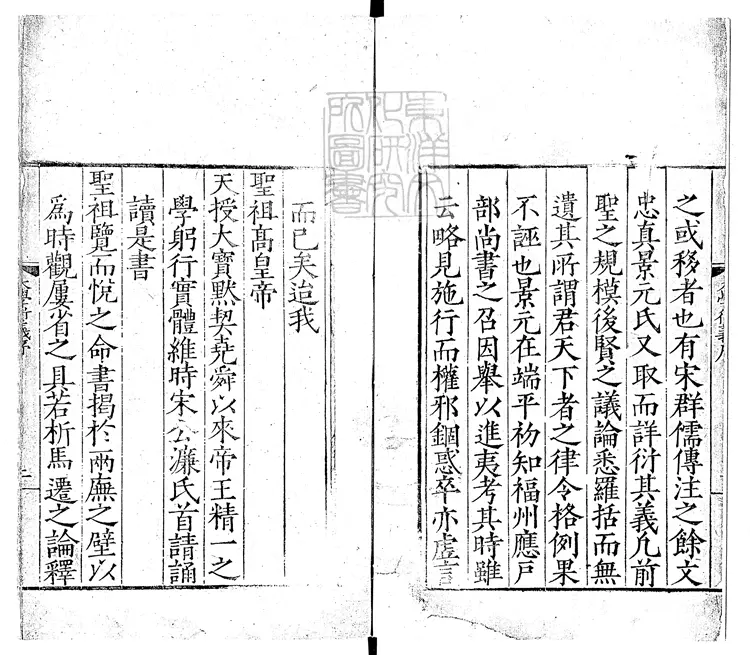 之或移者也有宋群儒傳注之餘文
忠真景元氏又取而詳衍其義凡前
聖之規模後賢之議論悉羅括而無
遺其所謂君天下者之律令格例果
不誣也景元在端平初知福州應戶
部尚書之召因舉以進夷考其時雖
云略見施行而權邪錮惑卒亦虛言
而已矣迨我
聖祖高皇帝
天授大寶默契堯舜以來帝王精一之
學躬行實體維時宋公濂氏首請誦
讀是書
聖祖覽而悅之命書揭於兩廡之壁以
為時觀屢省之具若析馬遷之論釋
東洋文化研究所圖書